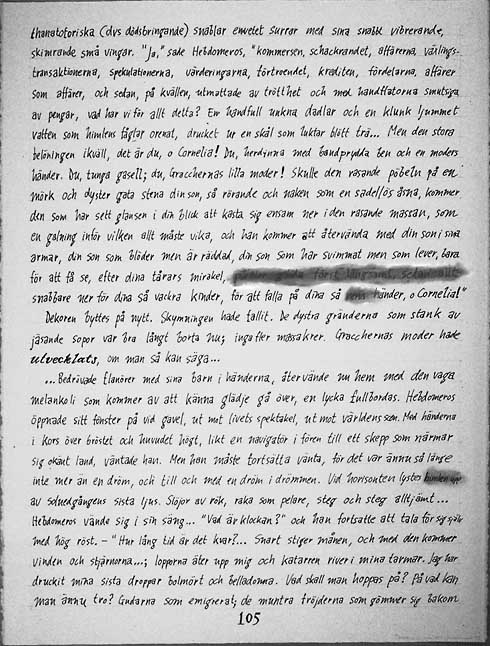 thanatoforiska (dvs dödsbringande) snablar emellet surrar med sina snabbt vibrerande,
skimrande små vingar. "Ja," sade Hebdomeros, "kommersen, schackrandet, affärerna, växlings-
transaktionerna, spekulationerna, värderingarna, förtroendet, krediten, fördelarna, affärer
som affärer, och sedan, på kvällen, utmattade av trötthet och med handflatorna smutsiga
av pengar, vad har vi för allt detta? En handfull unkna dadlar och en klunk ljummet
vatten som himlens fåglar orenat, drucket ur en skål som luktar blött trä... Men den stora
belöningen ikväll, det är du, o Cornelia! Du, herdinna med bandprydda ben och en moders
händer. Du, tunga gasell; du, Gracchernas lilla moder! Skulle den rasande pöbeln på en
mörk och dyster gata stena din son, så rörande och naken som en sadellös åsna, kommer
den som har sett glansen i din blick att kasta sig ensam ner i den rasande massan, som
en galning inför vilken allt måste vika, och han kommer att återvända med din son i sina
armar, din son som blöder men är räddad, din son som har svimmat men som lever, bara
för att få se, efter dina tårars mirakel, först långsamt, sedan allt
snabbare ner för dina så vackra kinder, för att falla på dina så händer, o Cornelia!"
Dekoren byttes på nytt. Skymningen hade fallit. De dystra gränderna som stank av
jäsande sopor var bra långt borta nu; inga fler massakrer. Gracchernas moder hade
utvecklats, om man så kan säga...
...Bedrövade flanörer med sina barn i händerna, återvände nu hem med den vaga
melankoli som kommer av att känna glädje gå över, en lycka fullbordas. Hebdomeros
öppnade sitt fönster på vid gavel, ut mot livets spektakel, ut mot världens scen. Med händerna
i kors över bröstet och huvudet högt, likt en navigatör i fören till ett skepp som närmar
sig okänt land, väntade han. Men han måste fortsätta vänta, för det var ännu så länge
inte mer än en dröm, och till och med en dröm i drömmen. Vid horisonten lystes himlen upp
av solnedgångens sista ljus. Slöjor av rök, raka som pelare, steg och steg alltjämt...
Hebdomeros vände sig i sin säng... "Vad är klockan?" och han fortsatte att tala för sig själv
med hög röst. – "Hur lång tid är det kvar?... Snart stiger månen, och med den kommer
vinden och stjärnorna...; lopporna äter upp mig och katarren river i mina tarmar. Jag har
druckit mina sista droppar bolmört och belladonna. Vad skall man hoppas på? På vad kan
man ännu tro? Gudarna som emigrerat; de muntra fröjderna som gömmer sig bakom
105